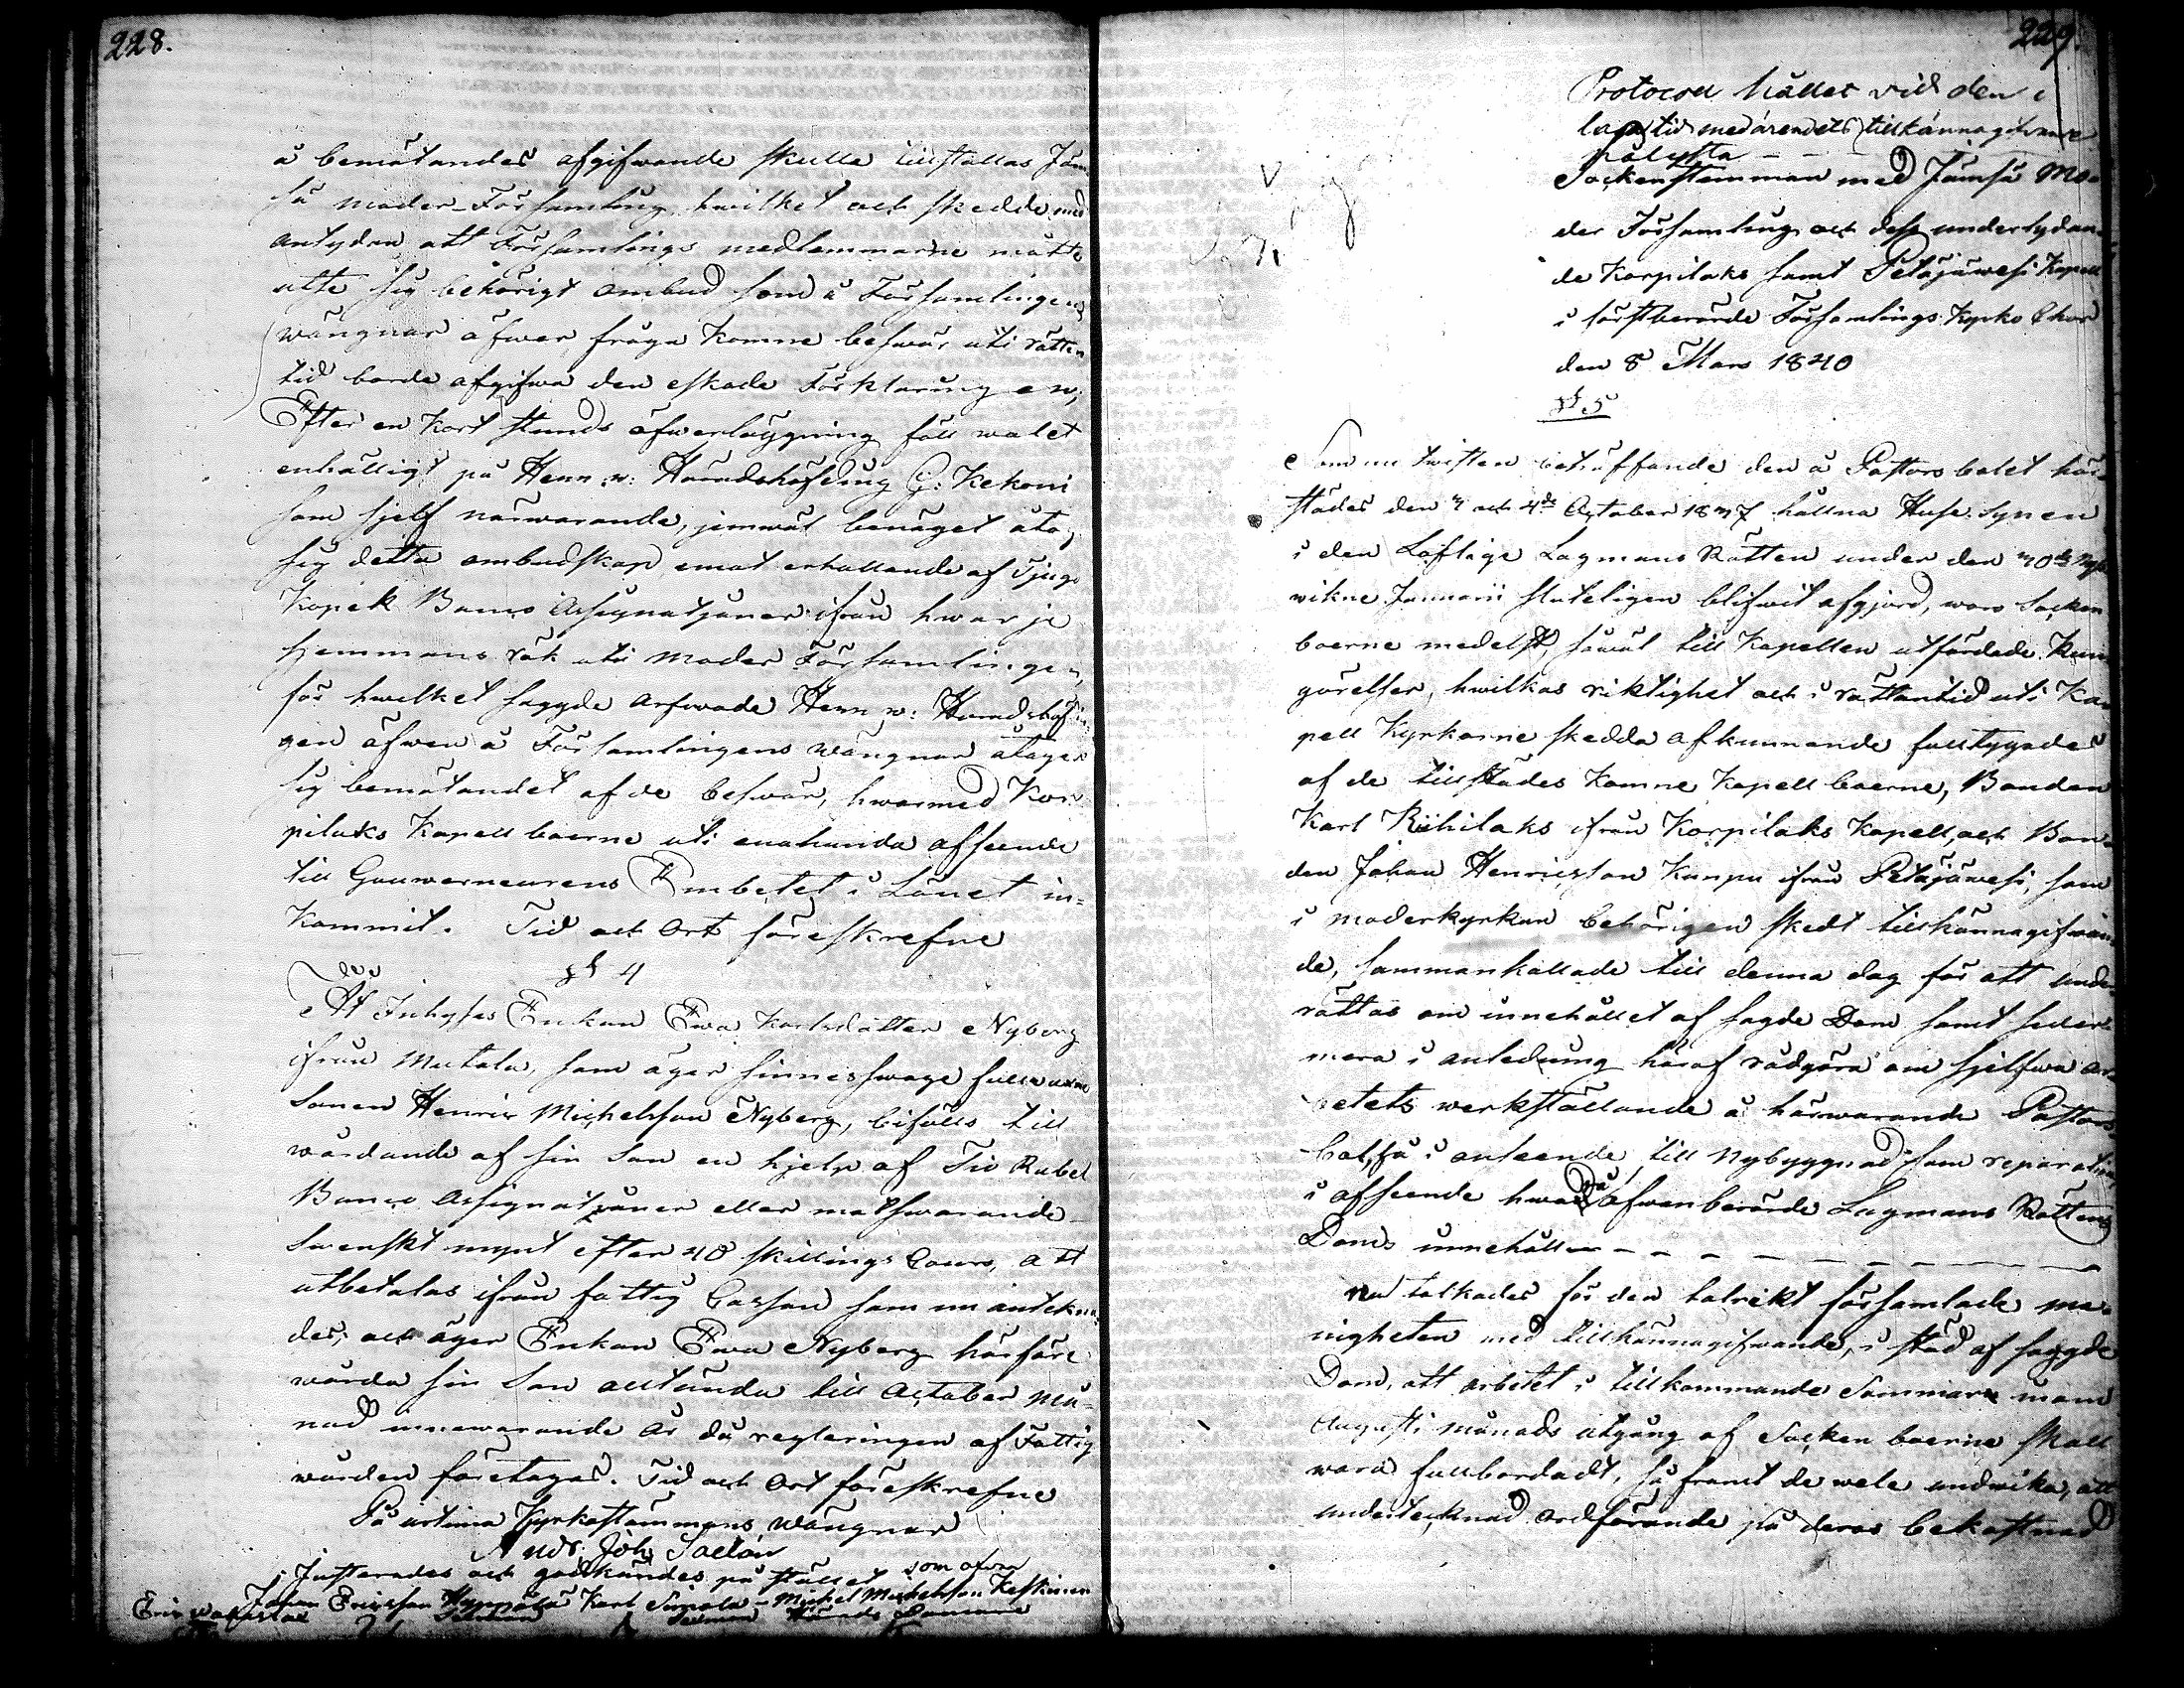 228.
å bemötandes afgifwande skulle tillställas Jäm
så moder-Församling, hwilket och skedde med
antydan att Församlings medlemmarne måtte
utse sig behörigt ombud som å Församlingens
wägnar öfwer fråga komne beswär uti rättan
tid borde afgifwa den äskade Förklaringen;
Efter en kort stunds öfwerläggning föll walet
enhälligt på Herr v: Häradshöfding G: Kekoni
som sjelf närwarande, jemwäl benäget åtog
sig detta ombudskap emot erhållande af Tjugo
Kopek Banco Assignatjoner ifrån hwarje
hemmans rök uti moder Församlingen,
för hwilket sagde arfwode Herr v: Häradshöfdin
gen äfwen å Församlingens wägnar åtager
sig bemötandet af de beswär, hwarmed Kor
pilaks Kapellboerne uti enahanda afseende
till Gouverneurens Embetet i Länet in=
kommit. Tid och Ort föreskrefne
§ 4
At Inhyses Enkan Ewa Karlsdotter Nyberg
ifrån Mutala, som äger sinnesswage fullwuxne
Sonen Henric Michelsson Nyberg, bifölls till
wårdande af sin Son en hjelp af Tio Rubel
Banco Assignatjoner eller motswarande
Swenskt mynt efter 48 skillings Cours, att
utbetalas ifrån fattig Cassan som nu antekna
des; och äger Enkan Ewa Nyberg härföre
wårda sin Son alltunda till October må=
nad innewarande år då regleringen af Fattig
wården företages. Tid och Ort föreskrefne
På Kyrkostämmans wägnar
And: Joh:
Justerades och godkändes på stället som ofvan
Johan Ericsson Hyppölä Karl Sipola - Michel Michelsson Keskinen
Eric
229.
Protocoll hållet vid den i
laga tid med ärendets tillkännagifvande
pålysta - - -
Sockenstämman med Jämsä Mo
der Församling och dess underlydan
de Korpilaks samt Petäjäwesi Kapell
i förstberörde Församlings Kyrko Chor
den 8 Mars 1840
§ 5
Som nu twisten beträffande den å Pastors bolet här
städes den 3 och 4de October 1837 hållna Huse Synen
i den Löflige Lagmans Rätten under den 30de nyss
wikne Januarii sluteligen blifwit afgjord, woro Socken
boerne medelst, såwäl till Kapellen utfärdade Kun
görelser, hwilkas riktighet och i rättan tid uti Ka
pell Kyrkorne skedda afkunnande fulltygades
af de tillstädes komne Kapellboerne, Bonden
Karl Riihilaks ifrån Korpilaks Kapell, och Bon
den Johan Henricsson Kumpu ifrån Petäjäwesi, som
i moderkyrkan behörigen skedt tillkännagifwan
de, sammankallade till denna dag för att under
rättas om innehållet af sagde Dom samt seder
mera i anledning häraf rådgöra om sjelfwa ar
betets werkställande å härwarande Pastors
bol, så i anseende till nybyggnad som reparation
i afseende hwarpå äfwenberörde Lagmans Rättens
Doms innehåll - - - - - - - -
nu tolkades för den talrikt församlade me
nigheten med tillkännagifwande, i stöd af sagde
Dom, att arbetet i tillkommande Sommar inom
Augusti månads utgång af Sockenboerne skall
wara fullbordadt, såframt de wele undwika, att
undertecknad ordförande på deras bekostnad